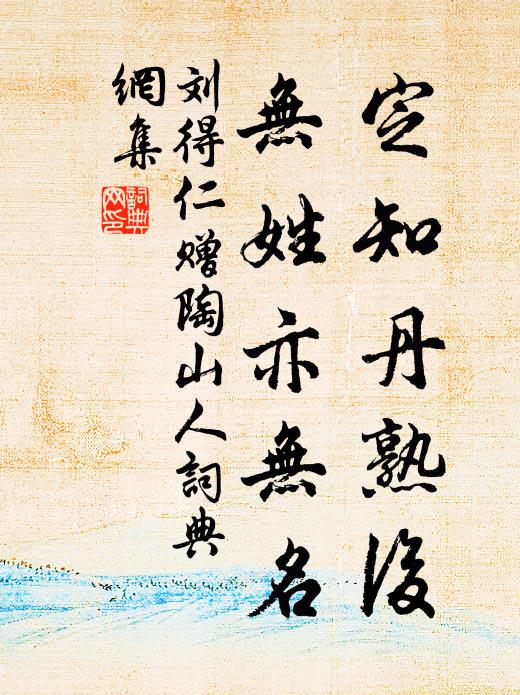 定知丹熟後
無姓亦無名
刘得仁赠陶山人詞典
網集
詞典
网印